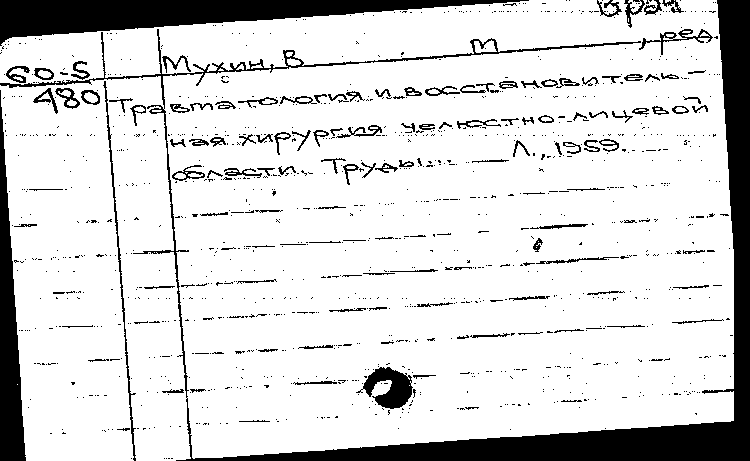 Врач
60-5 Мухин, В М , ред.
480 Травматология и восстановитель-
ная хирургия челюстно-лицевой
области. Труды... Л., 1959.